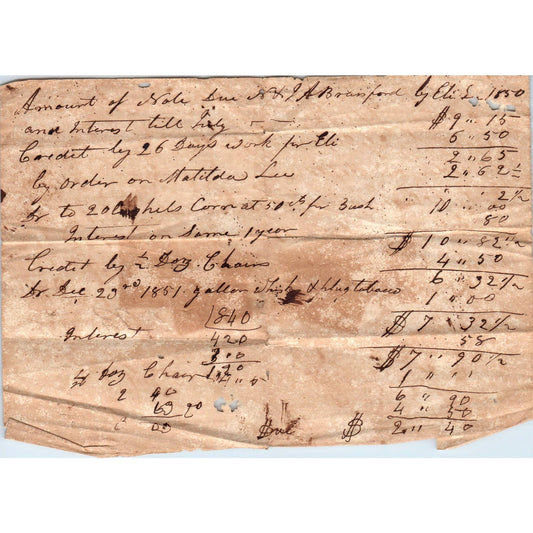 Amount of Note Due N & J A Bransford by Eli L. 1850
and Interest till Frdy $9 " 15
Credit by 26 Days work for Eli 6 " 50
2 " 65
by Order on Matilda Lee 2 " 62 ½
" " 2 ½
Dr to 20 Bushels Corn at 50 cts pr Bush 10 " 00
Interest on Same 1 year 80
$ 10 " 82 ½
Credit by ½ Doz Chairs 4 " 50
6 " 32 ½
Dr Dec 23rd 1851 gallon Whisky & plug tobacco 1 " 00
1840 $ 7 " 32 ½
Interest 420 58
$ 7 " 90 ½
½ Doz Chair 1 " "
2 40 6 " 90
20 4 " 50
Due $ 2 " 40